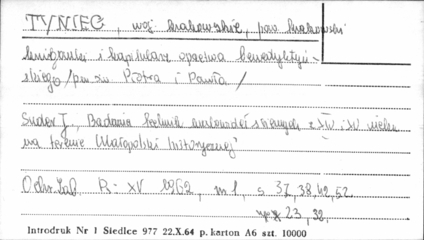 TYNIEC, woj. krakowskie, pow. krakowski
krużganki i kapitularz opactwa benedyktyń-
skiego /pw. św. Piotra i Pawła/
Suder J., Badania technik malowideł ściennych z XIV i XV wieku
na terenie Małopolski historycznej"
Ochr. Zab. R. XV 1962, nr 1, s 37, 38, 42, 52.
23, 32,
Introdruk Nr 1 Siedlce 977 22.X.64 p. karton A6 szt. 10000